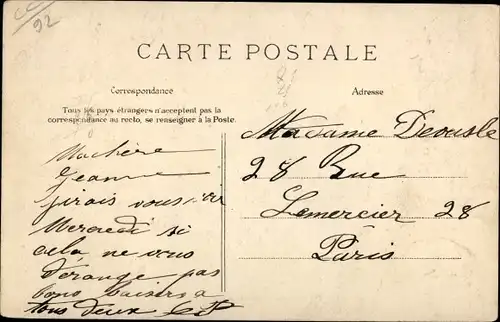 92
CARTE POSTALE
Correspondance
Adresse
Tous les pays étrangers n'acceptent pas la
correspondance au recto, se renseigner à la Poste.
Ma chère
Jeanne
j'irais vous voir
Mercredi si
cela ne vous
dérange pas
bons baisers a
tous deux
Madame Deousle
28 Rue
Lemercier 28
Paris